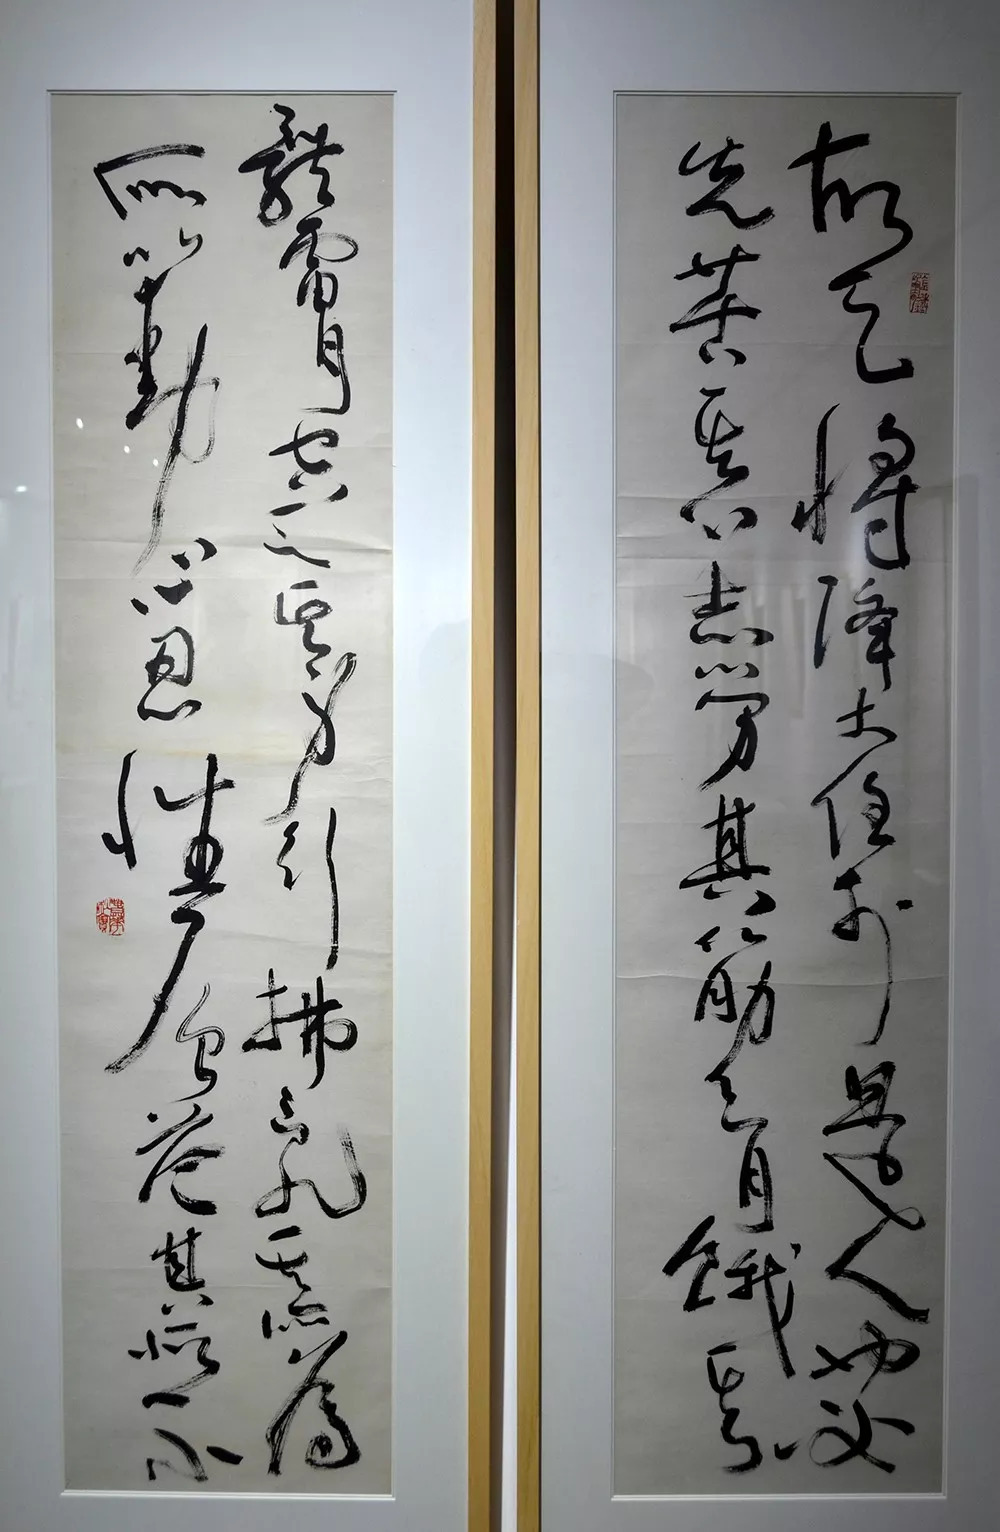 故天將降大任於是人也必
先苦其心志勞其筋骨餓其
體膚空乏其身行拂亂其所為
所以動心忍性曾益其所不